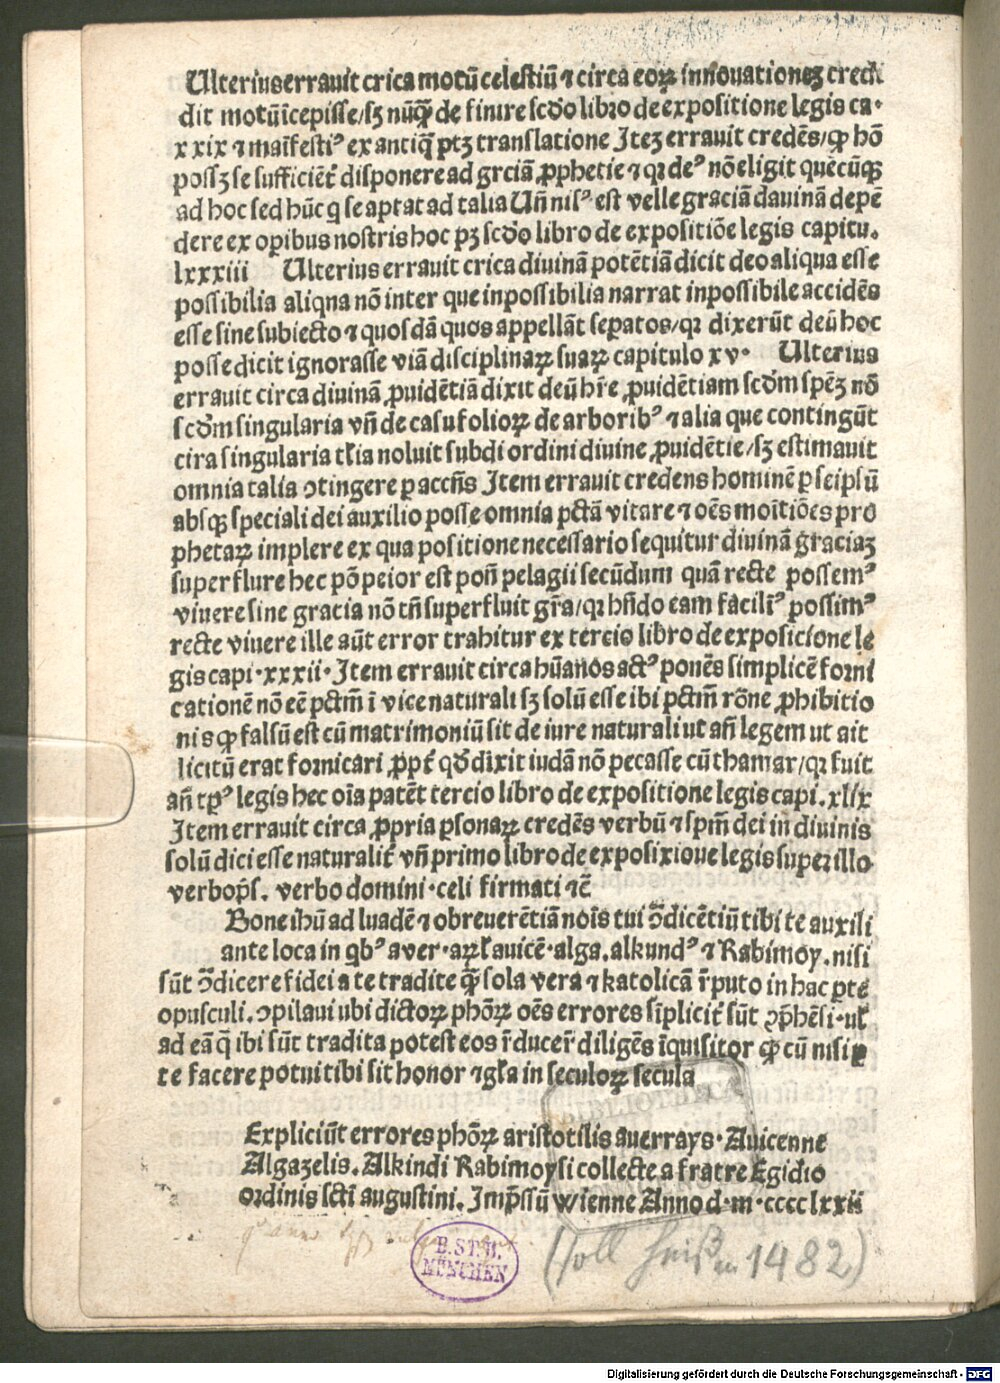 Ulterius errauit crica motū celestiū ⁊ circa eoꝝ innouationeꝫ credi
dit motū īcepisse/sꝫ nūq̄ꝫ de finire scd̄o libro de expositione legis ca·
xxix ⁊ maīfestiꝰ ex antiq̄ ptꝫ translatione Iteꝫ errauit credēs/ꝙ hō
possꝫ se sufficiēt̄ disponere ad grciā ꝓphetie ⁊ qꝛ deꝰ nō eligit quēcūqꝫ
ad hoc sed hūc q se aptat ad talia Uñ nisꝰ est velle graciā dauinā depē
dere ex oꝑibus nostris hoc pꝫ scd̄o libro de expositiōe legis capitu.
lxxxiii Ulterius errauit crica diuinā potētiā dicit deo aliqua esse
possibilia aliqna nō inter que inpossibilia narrat inpossibile accidēs
esse sine subiecto ⁊ quosdā quos appellāt seꝑatos/qꝛ dixerūt deū hoc
posse dicit ignorasse viā disciplinaꝝ suaꝝ capitulo xv· Ulterius
errauit circa diuinā ꝓuidētiā dixit deū hr̄e ꝓuidētiam scd̄m spēꝫ nō
scd̄m singularia vñ de casu folioꝝ de arboribꝰ ⁊ alia que contingūt
cira singularia tl̄ia noluit subdi ordini diuine ꝓuidētie/sꝫ estimauit
omnia talia ↄtingere ꝑ accñs Item errauit credens hominē ꝑ seipsū
absqꝫ speciali dei auxilio posse omnia pctā vitare ⁊ oēs moītiōes pro
phetaꝝ implere ex qua positione necessario sequitur diuinā graciaꝫ
superflure hec pō peior est poñ pelagii secūdum quā recte possemꝰ
viuere sine gracia nō tñ superfluit gr̄a/qꝛ hñdo eam faciliꝰ possimꝰ
recte viuere ille aūt error trahitur ex tercio libro de exposicione le
gis capi·xxxii· Item errauit circa hūanos actꝰ ponēs simplicē forni
cationē nō eē pctm̄ ī vice naturali sꝫ solū esse ibi pctm̄ rōne ꝓhibitio
nis ꝙ falsū est cū matrimoniū sit de iure naturali ut añ legem ut ait
licitū erat fornicari ꝓpt̄ qd̄ dixit iudā nō pecasse cū thamar/qꝛ fuit
añ tp̄ꝰ legis hec oīa patēt tercio libro de expositione legis capi.xlix
Item errauit circa ꝓpria ꝑsonaꝝ credēs verbū ⁊ spm̄ dei in diuinis
solū dici esse naturalit̄ vñ primo libro de exposixioue legis super illo
verbo p̄s. verbo domini·celi firmati ⁊c̄
Bone ihū ad luadē ⁊ obreuerētiā noīs tui ↄ̄dicētiū tibi te auxili
ante loca in qbꝰ aver·aꝝl̄ auicē·alga.alkundꝰ ⁊ Rabimoy.nisi
sūt ↄ̄dicere fidei a te tradite q̄ꝫ sola vera ⁊ katolicā r̄puto in hac ꝑte
opusculi.ↄpilaui ubi dictoꝝ phōꝝ oēs errores sīplicit̄ sūt ꝓp̄hēsi·ul̄
ad eā q̄ ibi sūt tradita potest eos r̄ducer̄ diligēs īquisitor ꝙ cū nisi ꝑ
te facere potui tibi sit honor ⁊ gl̄a in seculoꝝ secula
BIBLIOTHECA
Expliciūt errores phōꝝ aristotilis auerrays·Auicenne
Algazelis.Alkindi Rabimoysi collecte a fratre Egidio
ordinis sct̄i augustini.Imp̄ssū wienne Anno d·m·cccclxxii
B.ST.B.
MÜNCHEN
(soll heißen 1482)
Digitalisierung gefördert durch die Deutsche Forschungsgemeinschaft - DFG